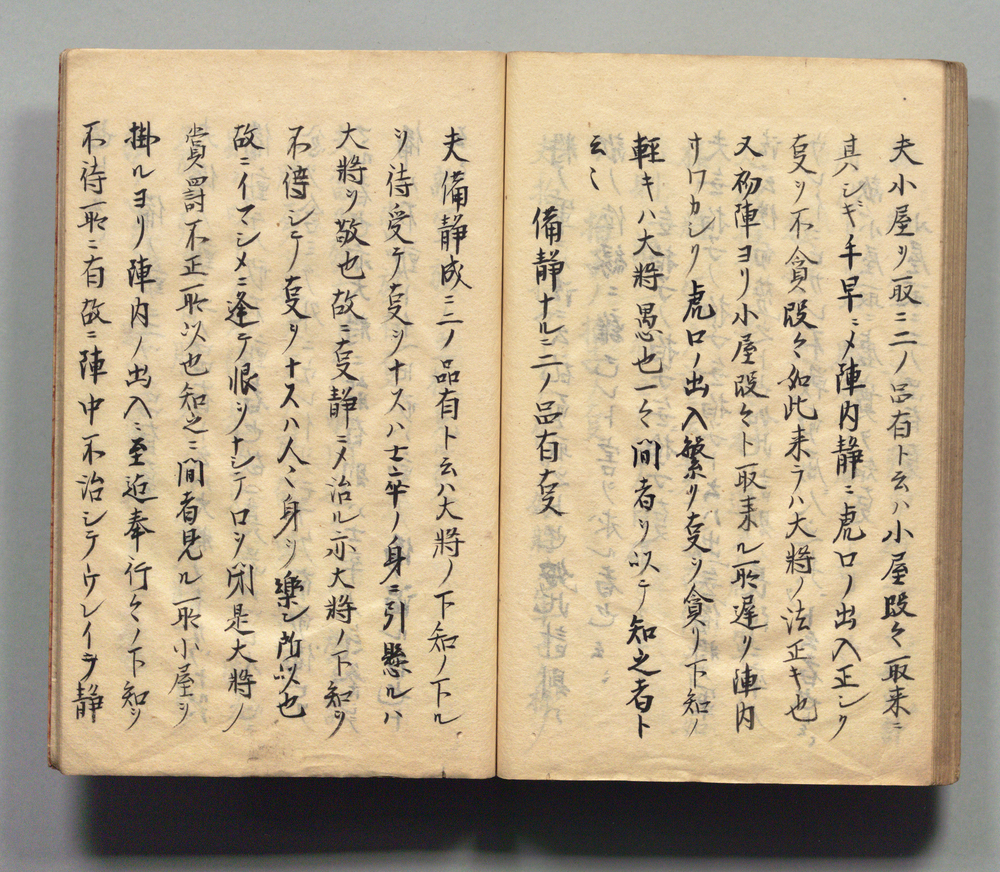 夫小屋ヲ取ニ二ノ品有ト云ハ小屋段々取来ニ
其シギ手早ニメ陣内静ニ虎口ノ出入正シク
㕝ヲ不貪段々如此来ラハ大將ノ法正キ也
又初陣ヨリ小屋段々ト取来ル所遅ク陣内
サワカシク虎口ノ出入繁ク㕝ヲ貪リ下知ノ
軽キハ大將愚也一々間者ヲ以テ知之者ト
云々
備静ナルニ二ノ品有㕝
夫備静成ニ二ノ品有ト云ハ大將ノ下知ノ下ル
ヲ待受テ㕝ヲナスハ士卒ノ身ニ引懸ルハ
大將ヲ敬也故ニ㕝静ニメ治ル亦大將ノ下知ヲ
不待シテ㕝ヲナスハ人々身ヲ樂シ所以也
故ニイマシメニ逢テ恨ヲナシテロヲ閉是大將ノ
賞罸不正所以也知之ニ間者見ル所小屋ヲ
掛ルヨリ陣内ノ出入ニ至迄奉行々ノ下知ヲ
不待所ニ有故ニ陣中不治シテウレイテ静